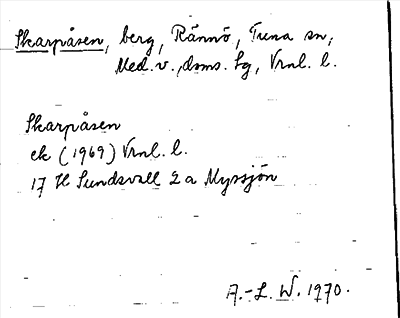 Skarpåsen, berg, Rännö, Tuna sn,
Med. v. dsms. hg, Vrnl. l.
Skarpåsen
ek (1969) Vrnl. l.
17 H Sundsvall 2 a Myssjön
A.-L. W. 1970.